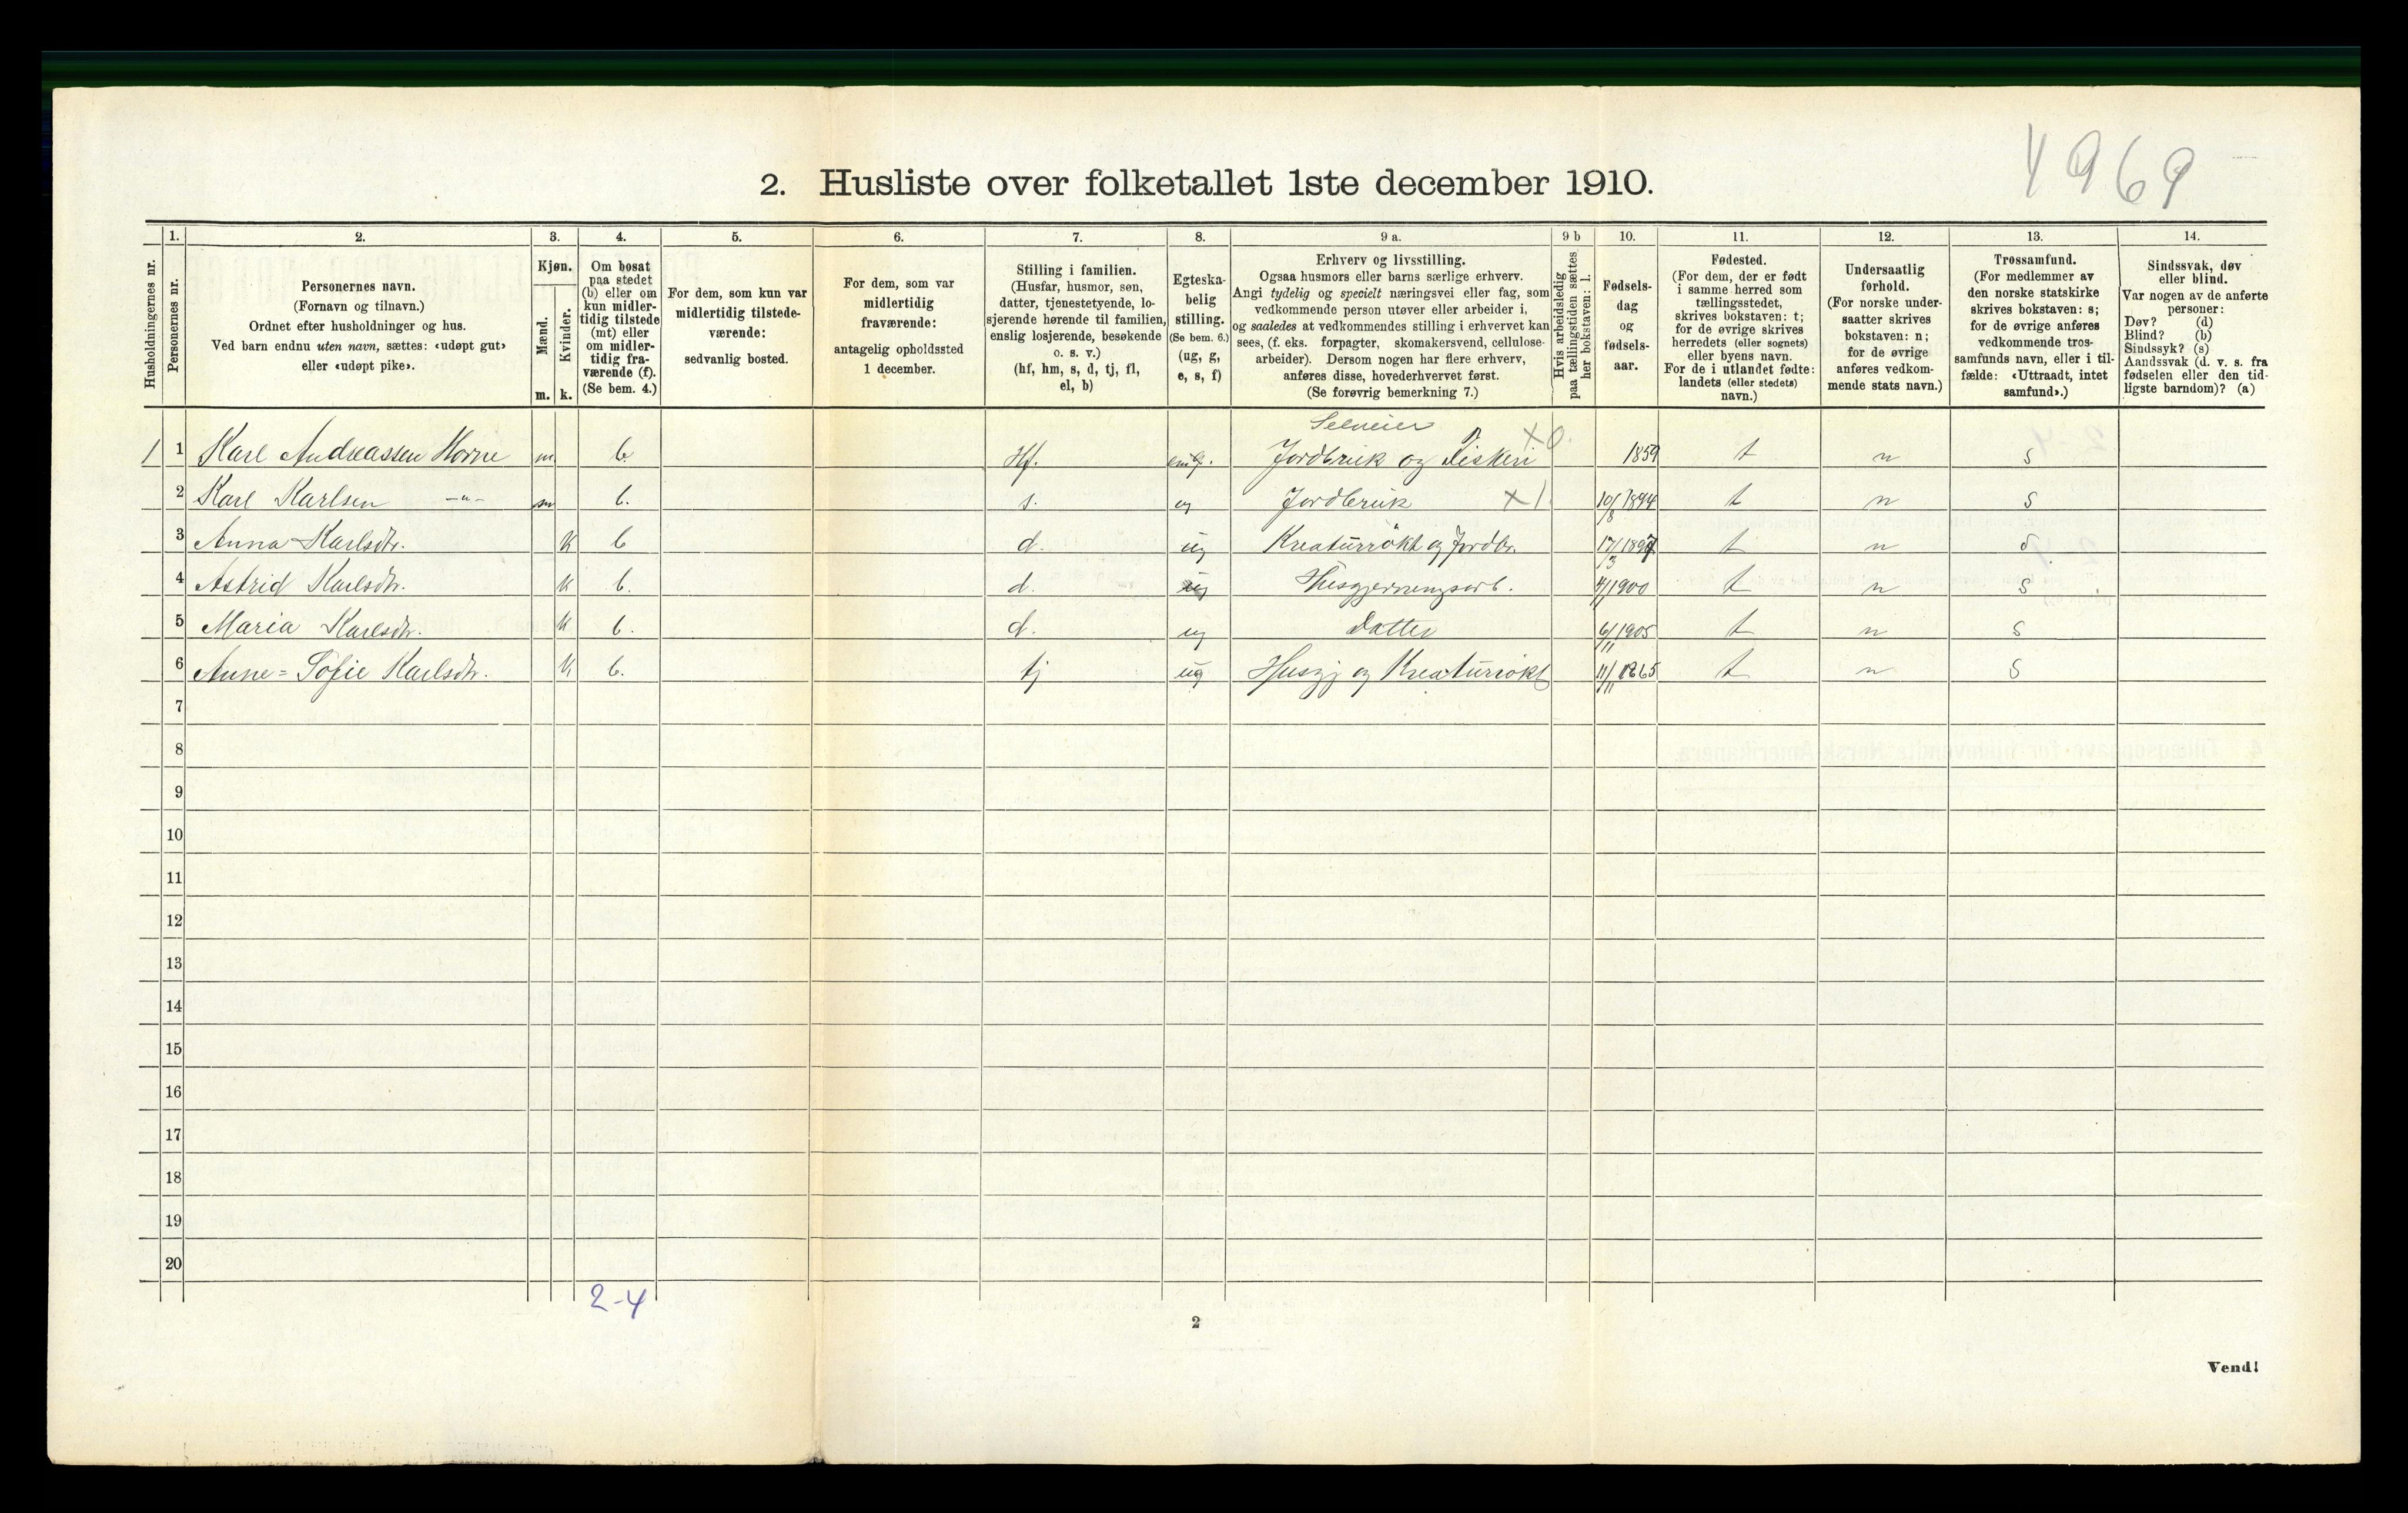 4969
2. Husliste over folketallet 1ste december 1910.
1. 2. 3. 4. 5. 6. 7. 8. 9 a. 9 b 10. 11. 12. 13. 14.
Husholdningernes nr.
Personernes nr.
Personernes navn.
(Fornavn og tilnavn.)
Ordnet efter husholdninger og hus.
Ved barn endnu uten navn, sættes: «udøpt gut»
eller «udøpt pike».
Kjøn.
Mænd.
Kvinder.
m. k.
Om bosat
paa stedet
(b) eller om
kun midler-
tidig tilstede
(mt) eller
om midler-
tidig fra-
værende (f).
(Se bem. 4.)
For dem, som kun var
midlertidig tilstede-
værende:
sedvanlig bosted.
For dem, som var
midlertidig
fraværende:
antagelig opholdssted
1 december.
Stilling i familien.
(Husfar, husmor, søn,
datter, tjenestetyende, lo-
sjerende hørende til familien,
enslig losjerende, besøkende
o. s. v.)
(hf, hm, s, d, tj, fl,
el, b)
Egteska-
belig
stilling.
(Se bem. 6.)
(ug, g,
e, s, f)
Erhverv og livsstilling.
Ogsaa husmors eller barns særlige erhverv.
Angi tydelig og specielt næringsvei eller fag, som
vedkommende person utøver eller arbeider i,
og saaledes at vedkommendes stilling i erhvervet kan
sees, (f. eks. forpagter, skomakersvend, cellulose-
arbeider). Dersom nogen har flere erhverv,
anføres disse, hovederhvervet først.
(Se forøvrig bemerkning 7.)
Hvis arbeidsledig
paa tællingstiden sættes
her bokstaven: l.
Fødsels-
dag
og
fødsels-
aar.
Fødested.
(For dem, der er født
i samme herred som
tællingsstedet,
skrives bokstaven: t;
for de øvrige skrives
herredets (eller sognets)
eller byens navn.
For de i utlandet fødte:
landets (eller stedets)
navn.)
Undersaatlig
forhold.
(For norske under-
saatter skrives
bokstaven: n;
for de øvrige
anføres vedkom-
mende stats navn.)
Trossamfund.
(For medlemmer av
den norske statskirke
skrives bokstaven: s;
for de øvrige anføres
vedkommende tros-
samfunds navn, eller i til-
fælde: «Uttraadt, intet
samfund».)
Sindssvak, døv
eller blind.
Var nogen av de anførte
personer:
Døv? (d)
Blind? (b)
Sindssyk? (s)
Aandssvak (d. v. s. fra
fødselen eller den tid-
ligste barndom)? (a)
Selveier
1 1 Karl Andreassen Horne m b. Hf. Jordbruk og Fiskeri X0. 1859 t n s
2 Karl Karlsen -"- m b. s. ug Jordbruk X1. 10/8 1894 t n s
3 Anna Karlsdtr. K b d. ug Kreaturrökt og Jordbr. 17/3 1897 t n s
4 Astrid Karlsdtr. K b. d. ug Husgjerningsarb. 1900 t n s
5 Maria Karlsdtr. K b. d. ug Datter 6/11 1905 t n s
6 Anne=Sofie Karlsdtr. K b. tj ug Husgj og Kreaturrökt 11/11 1865 t n s
7
8
9
10
11
12
13
14
15
16
17
18
19
20
2-4
2
Vend!